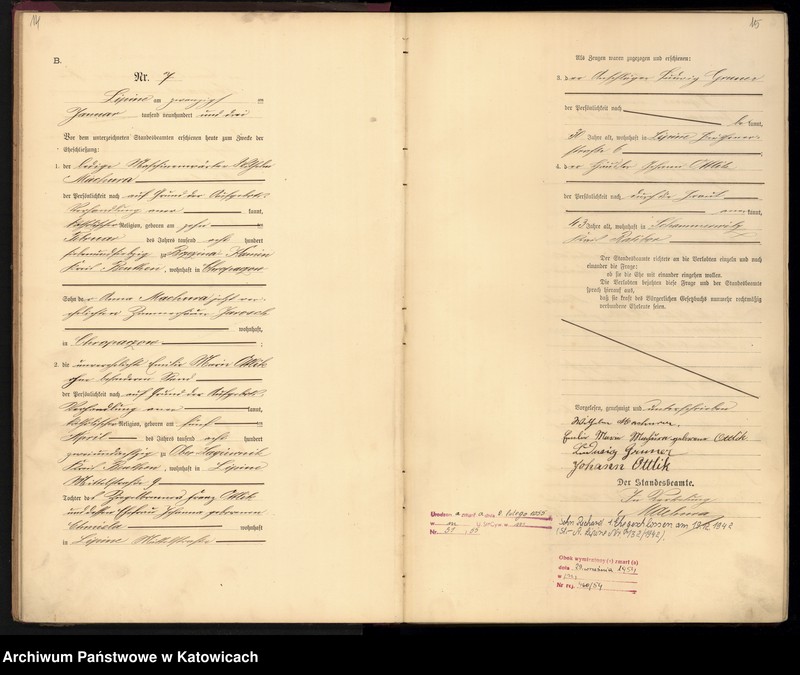 114
B.
Nr. 7
Lipine am zwanzigsten
Januar tausend neunhundert und drei
Vor dem unterzeichneten Standesbeamten erschienen heute zum Zwecke der
Eheschließung:
1. der ledige Maschinenwärter Wilhelm
Machura
der Persönlichkeit nach auf Grund der Aufgebots-
Verhandlung anerkannt,
katholischer Religion, geboren am zehnten
Februar des Jahres tausend acht hundert
zu Kamin
Kreis Beuthen, wohnhaft in Chropaczow
Sohn der Anna Machura jetzt ver-
ehelichten
wohnhaft,
in Chropaczow
2. die unverehelichte Emilie Marie Ottlik
ohne besonderen Stand
der Persönlichkeit nach auf Grund der Aufgebots-
Verhandlung anerkannt,
katholischer Religion, geboren am fünften
April des Jahres tausend acht hundert
zweiundachtzig zu Ober Lagiewnik
Kreis Beuthen, wohnhaft in Lipine
Mittelstraße 9
Tochter des Franz Ottlik
und dessen Ehefrau Johanna geborenen
wohnhaft
in Lipine Mittelstraße
115
Als Zeugen waren zugezogen und erschienen:
3. der Ludwig Gruner
der Persönlichkeit nach
bekannt,
Jahre alt, wohnhaft in Lipine Beuthener-
straße 6
4. der Häusler Johann Ottlik
der Persönlichkeit nach durch die Braut
anerkannt,
43 Jahre alt, wohnhaft in Schammerwitz
Kreis Ratibor
Der Standesbeamte richtete an die Verlobten einzeln und nach
einander die Frage:
ob sie die Ehe mit einander eingehen wollen.
Die Verlobten bejahten diese Frage und der Standesbeamte
sprach hierauf aus,
daß sie kraft des Bürgerlichen Gesetzbuchs nunmehr rechtmäßig
verbundene Eheleute seien.
Vorgelesen, genehmigt und unterschrieben
Wilhelm Machura
Emilie Marie Machura geborene Ottlik
Ludwig Gruner
Johann Ottlik
Der Standesbeamte.
In Vertretung
Machura
Sohn Richard 1. Eheschlossen am 1942
Nr. 132/1942).
zmarł a dnia 8 lutego 1955
w
Nr.
Obok wymieniony (a) zmarł (a)
dnia 29 września 1954
w
Nr rej. /54
Archiwum Państwowe w Katowicach